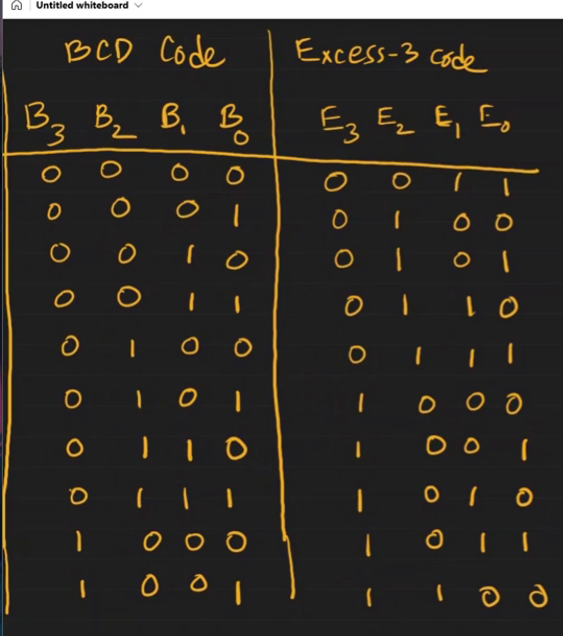 Untitled whiteboard
BCD Code Excess-3 code
B3 B2 B1 B0 E3 E2 E1 E0
0 0 0 0 0 0 1 1
0 0 0 1 0 1 0 0
0 0 1 0 0 1 0 1
0 0 1 1 0 1 1 0
0 1 0 0 0 1 1 1
0 1 0 1 1 0 0 0
0 1 1 0 1 0 0 1
0 1 1 1 1 0 1 0
1 0 0 0 1 0 1 1
1 0 0 1 1 1 0 0